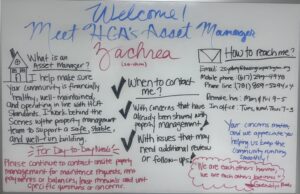 Welcome!
Meet HCA's Asset Manager
Zachrea
What is an
Asset Manager?
I help make sure
your community is financially
healthy, well-maintained,
and operating in line with HCA
Standards. I work behind the
scenes w/the property management
team to support a Safe, Stable
and well-run building.
For Day-to-Day Needs
Please continue to contact onsite property
management for maintenance requests, rent
payments or balances, lease renewals and unit
specific questions or concerns.
When to contact
me?
With concerns that have
already been shared with
property management.
With issues that may
need additional review
or follow-up!
How to reach me?
Email:
Mobile phone
Office phone
Your concerns matter,
and we appreciate you
helping us keep the
community running
smoothly!
We are each others